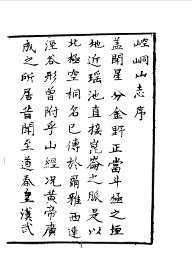 崆峒山志序
蓋聞星分金野正當斗極之垣
地近瑶池直接崑崙之脈是以
北極空桐名已傳於爾雅西連
涇谷形曾附乎山經况黄帝廣
成之所居昔聞至道秦皇漢武